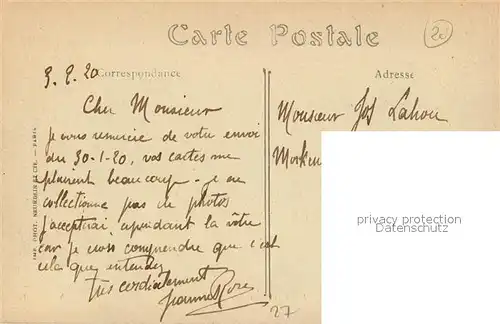 Carte Postale
2e
9. 2. 20
Correspondance
Adresse
Cher Monsieur
je vous remercie de votre envoi
du 30-1-20, vos cartes me
plairent beaucoup - je ne
collectionne pas de photos
j'accepterai cependant la vôtre
car je crois comprendre que c'est
cela que entendez
Très cordialement
Jeanne Rose
Monsieur Jos Lahou
privacy protection
Datenschutz
IMP. PHOT. NEURDEIN ET CIE. — PARIS
27